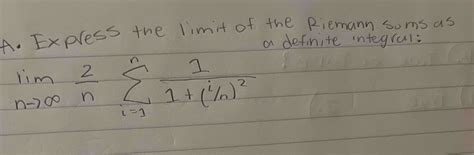 A. Express the limit of the Riemann sums as
a definite integral:
lim n→∞ 2/n n∑i=1 1/1+(i/n)²